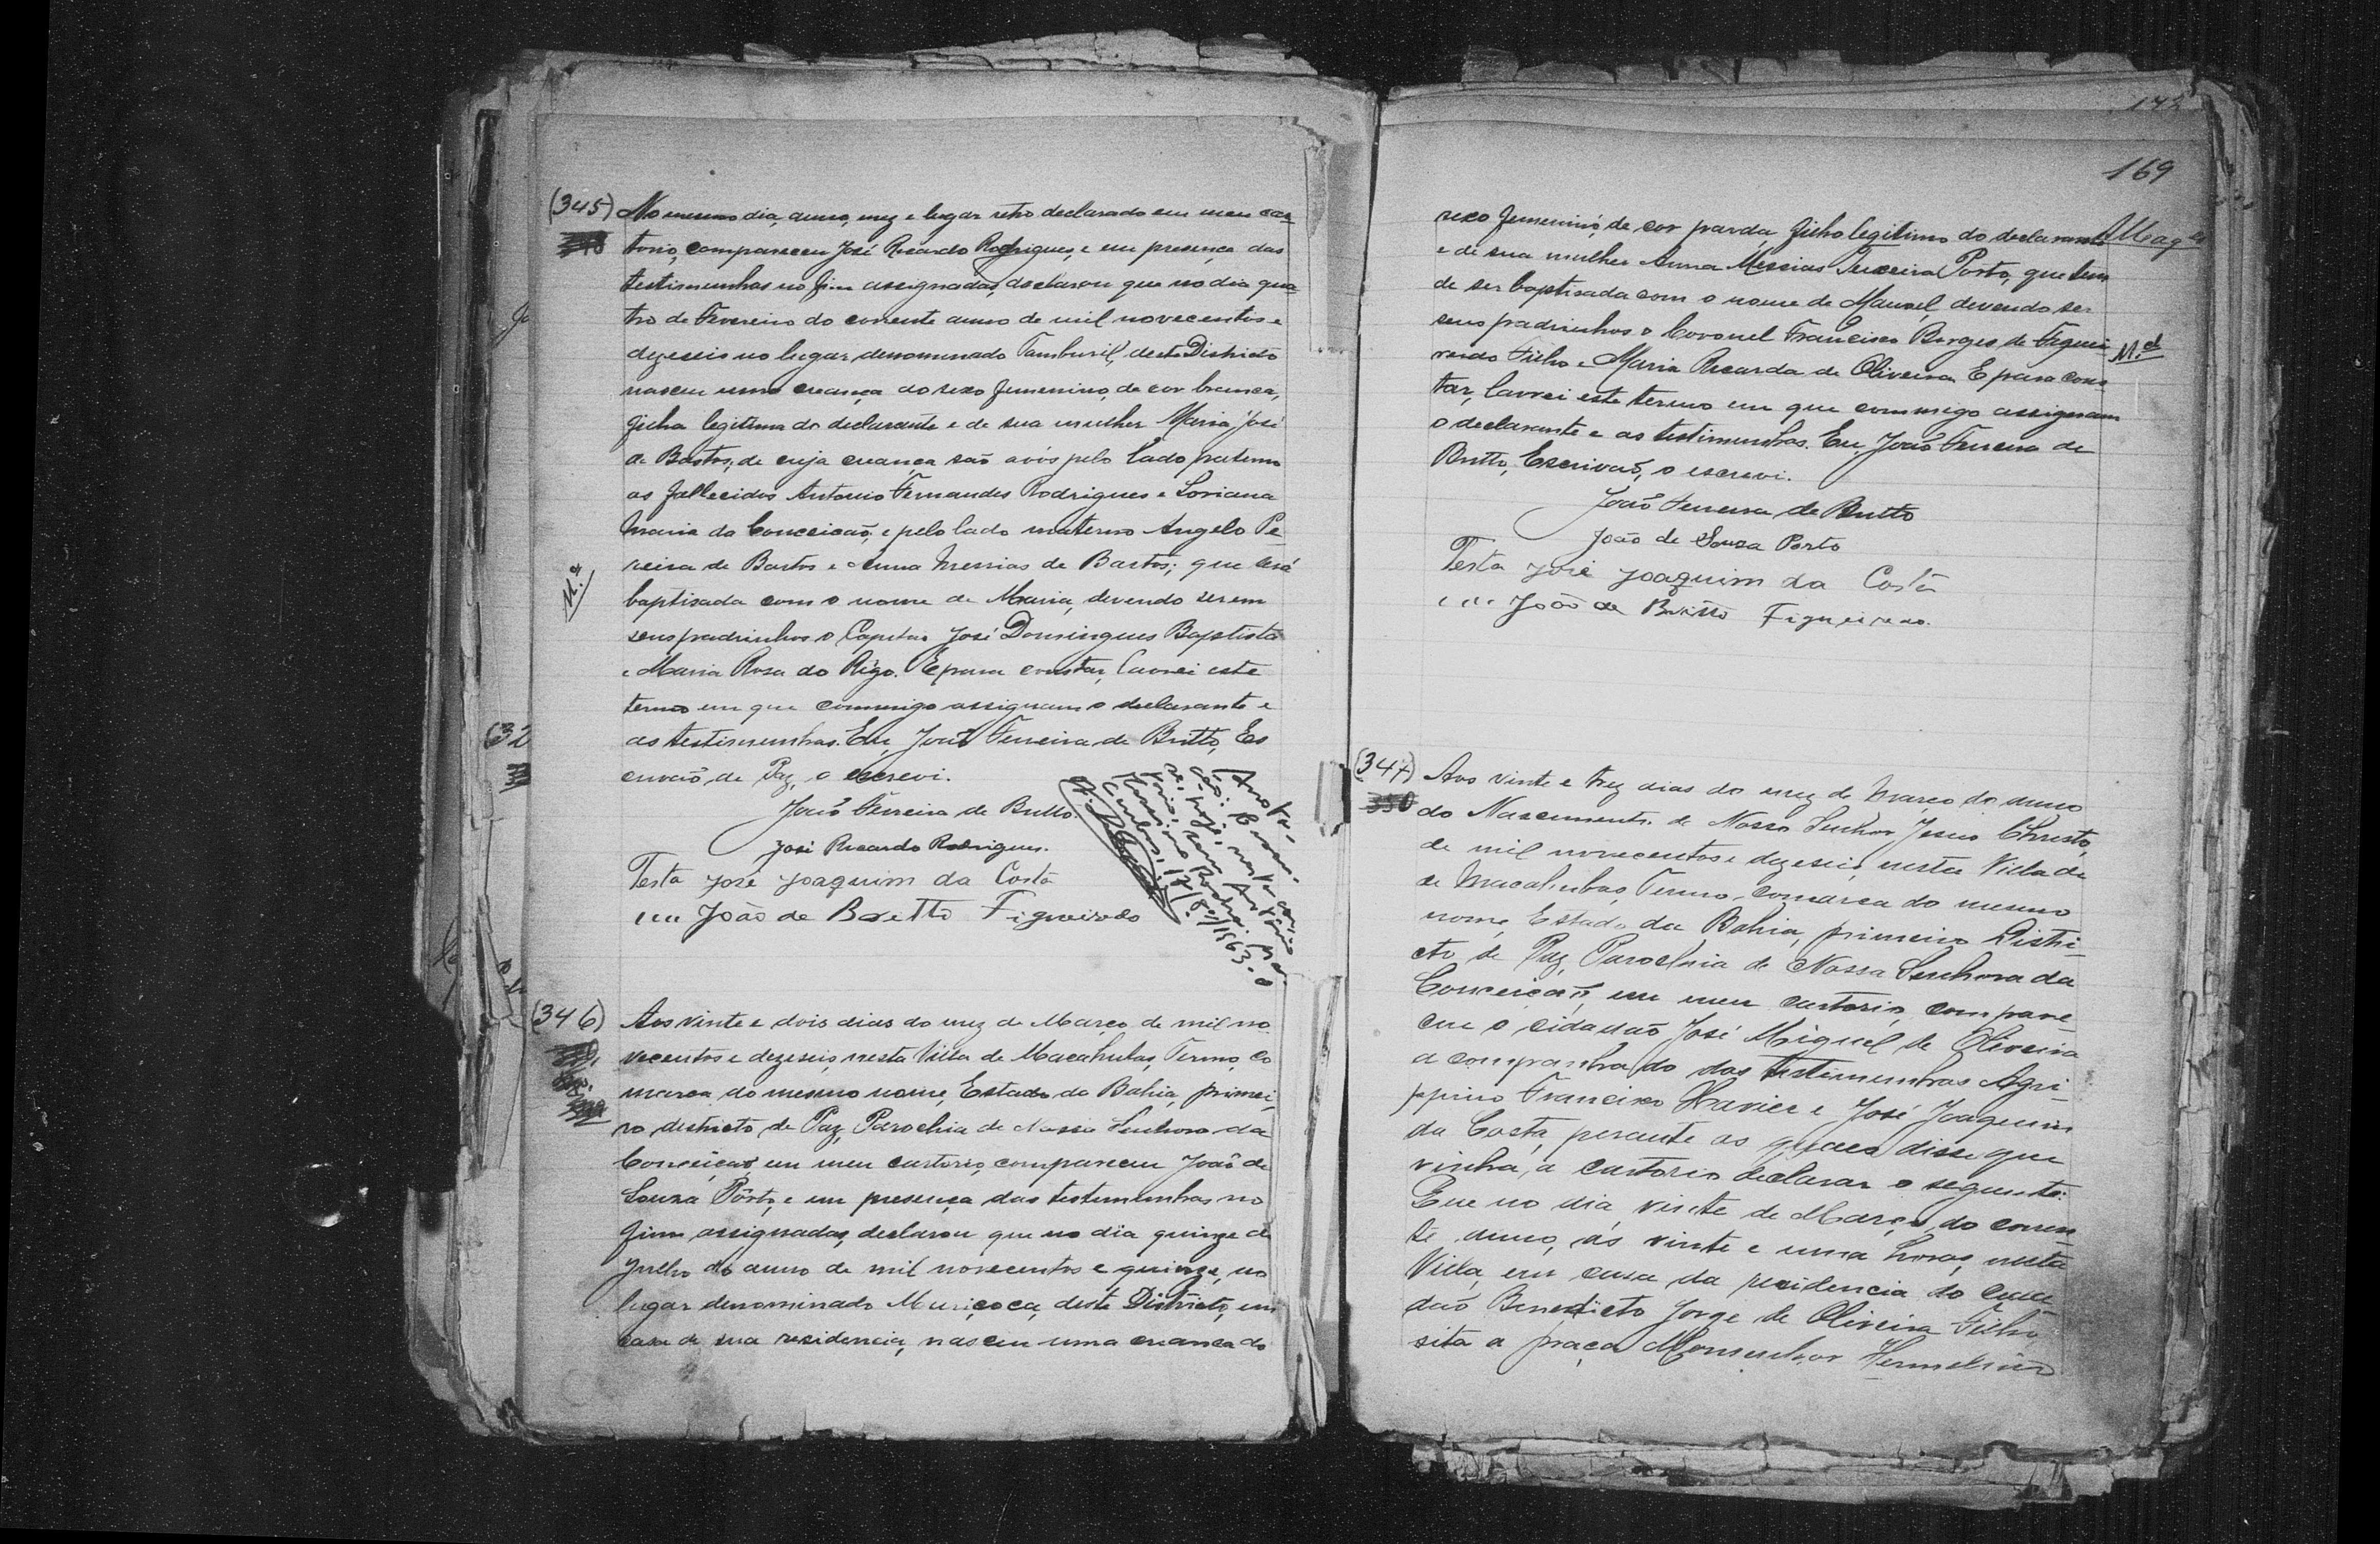 (345) No mesmo dia, anno, mez e lugar retro declarado em meu car
torio, compareceu José Ricardo Rodrigues, e em presença das
testimunhas no fim assignadas, declarou que no dia qua
tro de Fevereiro do corrente anno de mil novecentos e
dezeseis no lugar denominado Tamburil, deste Districto
nasceu uma creança do sexo femenino, de cor branca,
filha legitima do declarante e de sua mulher Maria José
de Bastos, de cuja creança são avós pelo lado paterno
os fallecidos Antonio Fernandes Rodrigues e Loriana
Maria da Conceicaõ, e pelo lado materno Angelo Pe
reira de Bastos e Anna Messias de Bastos; que será
baptisada com o nome de Maria, devendo serem
seus padrinhos o Capitão José Domingues Baptista
e Maria Rosa do Rêgo. E para constar, lavrei este
termo em que commigo assignam o declarante e
as testimunhas. Eu, João Ferreira de Britto, Es
crivaõ de Paz, o escrevi.
João Ferreira de Britto.
José Ricardo Rodrigues.
Testa José Joaquim da Costa
" " João de Britto Figueiredo
(346) Aos vinte e dois dias do mez de Março de mil no
vecentos e dezeseis, nesta Villa de Macahubas, Termo, Co
marca do mesmo nome, Estado da Bahia, primei
ro districto de Paz, Parochia de Nossa Senhora da
Conceiçaõ em meu cartorio, compareceu João de
Souza Pôrto, e em presença das testemunhas no
fim assignadas, declarou que no dia quinze de
Julho do anno de mil novecentos e quinze, no
lugar denominado Muriçoca, deste Districto, em
casa de sua residencia, nasceu uma creança do
169
sexo femenino, de cor parda, filho legitimo do declarante
e de sua mulher Anna Messias Teixeira Porto, que tem
de ser baptisada com o nome de Manoel, devendo ser
seus padrinhos o Coronel Francisco Borges de Figuei
redo Filho e Maria Ricarda de Oliveira. E para cons
tar, lavrei este termo em que commigo assignam
o declarante e as testimunhas. Eu, João Ferreira de
Britto, Escrivaõ, o escrevi.
João Ferreira de Britto
João de Souza Porto
Testa José Joaquim da Costa
" " João de Britto Figueiredo.
(347) Aos vinte e trez dias do mez de Março do anno
do Nascimento de Nosso Senhor Jesus Christo,
de mil novecentos e dezeseis, nesta Villa de
de Macahubas, Termo, comarca do mesmo
nome, Estado da Bahia, primeiro Distri-
cto de Paz, Parochia de Nossa Senhora da
Conceiçaõ, em meu cartorio, compare-
ceu o cidadão José Miguel de Oliveira
acompanhado das testimunhas Agri-
ppino Francisco Xavier e José Joaquim
da Costa, perante as quaes disse que
vinha, a cartorio declarar o seguinte:
Que no dia vinte de Março, do corren
te anno, ás vinte e uma horas, nesta
Villa, em casa da residencia do cida-
daõ Benedicto Jorge de Oliveira Filho,
sita a praça Monsenhor Hermelino